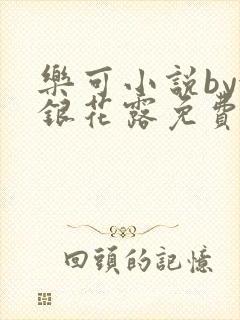 樂可小說by
銀花露免費
回頭的記憶